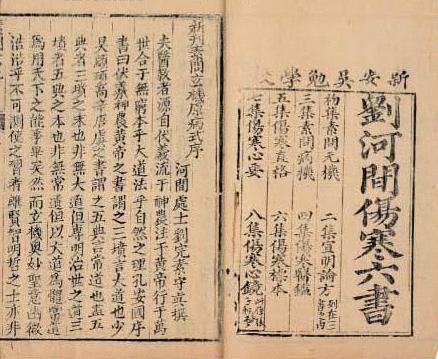 新安吳勉學
劉河間傷寒六書
初集素問元機 二集宣明論方
三集素問病機 四集傷寒醫鑑
五集傷寒直格 六集傷寒標本
七集傷寒心要 八集傷寒心鏡
新刊素問玄機原病式序
河間處士劉完素守真撰
夫醫教者源自伏羲流于神農註于黃帝行于萬
世合于無窮本乎大道法乎自然之理孔安國序
書曰伏羲神農黃帝之書謂之三墳言大道也少
昊顓頊高辛唐虞之書謂之五典言常道也蓋五
典者三墳之末也非無大道但專明治世之道三
墳者五典之本也非無常道但以大道為體常道
為用天下之能事畢矣然而立機奧妙聖意幽微
浩浩乎不可測使之習者雖賢智明哲之士亦非